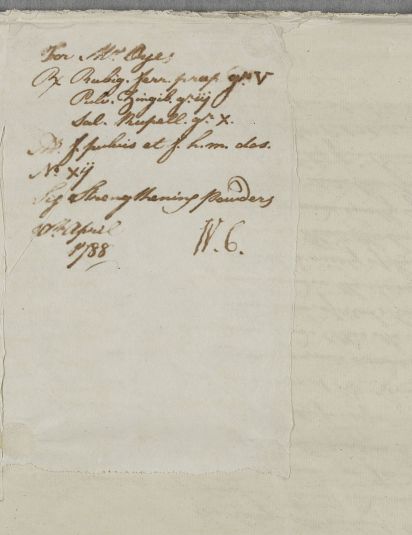 For Mr. Dyer
Rx Rubig. ferr. praep. grs V
Pulv. Zingib. gr. iij
Sal. Rupell. gr. X.
M. f. pulvis et f. h. m. dos.
No. xij
Sig Strengthening Powders
April
1788 W. C.